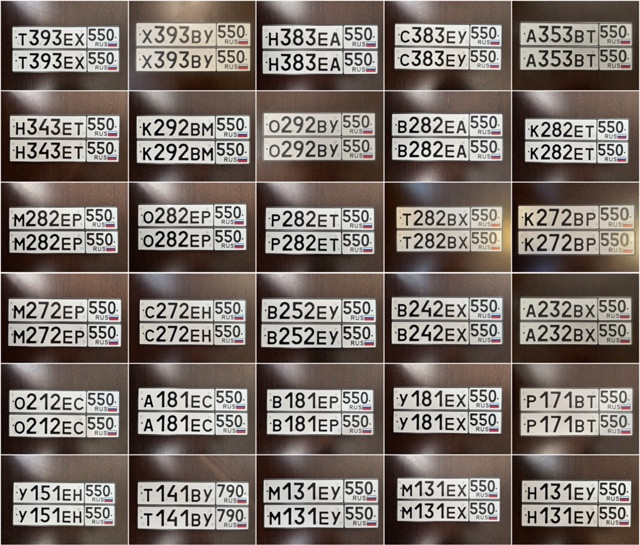 Т393ЕХ 550 RUS
Т393ЕХ 550 RUS
Х393ВУ 550 RUS
Х393ВУ 550 RUS
Н383ЕА 550 RUS
Н383ЕА 550 RUS
С383ЕУ 550 RUS
С383ЕУ 550 RUS
А353ВТ 550 RUS
А353ВТ 550 RUS
Н343ЕТ 550 RUS
Н343ЕТ 550 RUS
К292ВМ 550 RUS
К292ВМ 550 RUS
О292ВУ 550 RUS
О292ВУ 550 RUS
В282ЕА 550 RUS
В282ЕА 550 RUS
К282ЕТ 550 RUS
К282ЕТ 550 RUS
М282ЕР 550 RUS
М282ЕР 550 RUS
О282ЕР 550 RUS
О282ЕР 550 RUS
Р282ЕТ 550 RUS
Р282ЕТ 550 RUS
Т282ВХ 550 RUS
Т282ВХ 550 RUS
К272ВР 550 RUS
К272ВР 550 RUS
М272ЕР 550 RUS
М272ЕР 550 RUS
С272ЕН 550 RUS
С272ЕН 550 RUS
В252ЕУ 550 RUS
В252ЕУ 550 RUS
В242ЕХ 550 RUS
В242ЕХ 550 RUS
А232ВХ 550 RUS
А232ВХ 550 RUS
О212ЕС 550 RUS
О212ЕС 550 RUS
А181ЕС 550 RUS
А181ЕС 550 RUS
В181ЕР 550 RUS
В181ЕР 550 RUS
У181ЕХ 550 RUS
У181ЕХ 550 RUS
Р171ВТ 550 RUS
Р171ВТ 550 RUS
У151ЕН 550 RUS
У151ЕН 550 RUS
Т141ВУ 790 RUS
Т141ВУ 790 RUS
М131ЕУ 550 RUS
М131ЕУ 550 RUS
М131ЕХ 550 RUS
М131ЕХ 550 RUS
Н131ЕУ 550 RUS
Н131ЕУ 550 RUS